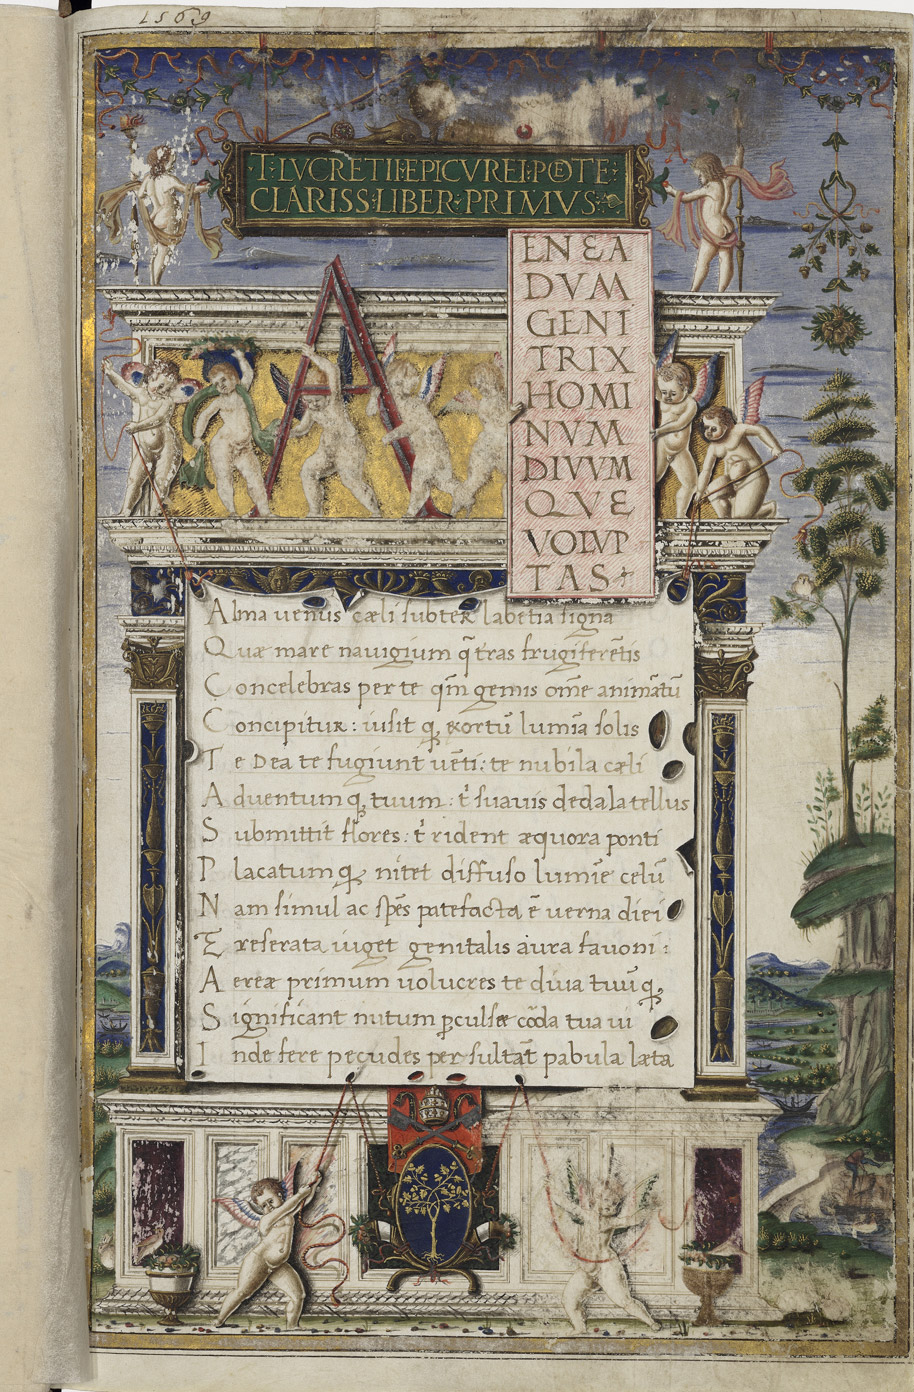 1569
T·LVCRETII·EPICVREI·POETE·
CLARISS·LIBER·PRIMVS·
A
ENEA
DVM
GENI
TRIX
HOMI
NVM
DIVVM
QVE
VOLVP
TAS
Alma uenus cæli subter labētia signa
Quæ mare nauigium q̄ tr̄as frugiferētis
Concelebras per te qm̄ genus omē animātū
Concipitur: uisit q; exortū lumīa solis
Te Dea te fugiunt uēti: te nubila cæli
Aduentumq; tuum: t' suauis dedala tellus
Submittit flores: t' rident æquora ponti
Placatumq; nitet diffuso lumīe celū
Nam simul ac spēs patefacta ē uerna diei
Exreserata uiget genitalis aura fauoni:
Aereæ primum uolucres te diuia tuūq;
Significant initum ꝑculsæ corda tua ui
Inde fere pecudes persultāt pabula læta